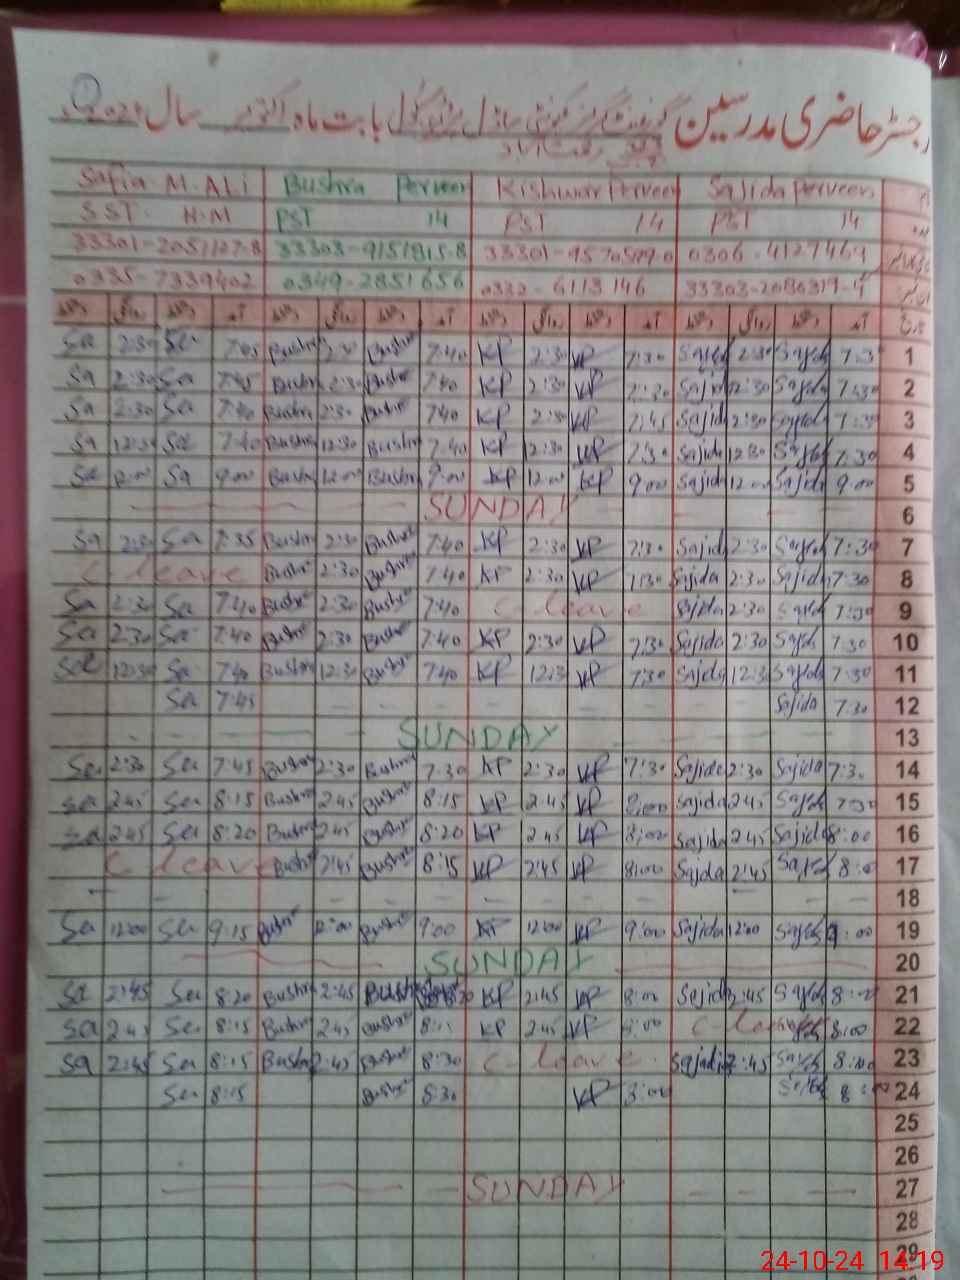 رجسٹر حاضری مدرسین گورنمنٹ گرلز کمیونٹی ماڈل پرائمری سکول بابت ماہ اکتوبر سال 2024
Safia M.ALi Bushra Perveen Kishwar Perveen Sajida Perveen
SST. H.M PST 14 PST 14 PST 14
33301-2051127-8 33303-9151815-8 33301-9570599-0 0306-4127464
0335-7339402 0349-2851656 0332-6113146 33303-2080319-4
دستخط روانگی دستخط آمد دستخط روانگی دستخط آمد دستخط روانگی دستخط آمد دستخط روانگی دستخط آمد تاریخ
Sa 2:30 Sa 7:45 Bushra 2:30 Bushra 7:40 KP 2:30 KP 7:30 Sajida 2:30 Sajida 7:3 1
Sa 2:30 Sa 7:45 Bushra 2:30 Bushra 7:40 KP 2:30 KP 7:30 Sajida 2:30 Sajida 7:30 2
Sa 2:30 Sa 7:40 Bushra 2:30 Bushra 740 KP 2:30 KP 7:45 Sajida 2:30 Sajida 7:30 3
Sa 12:30 Sa 7:40 Bushra 12:30 Bushra 7.40 KP 12:30 KP 7:30 Sajida 12:30 Sajida 7:30 4
Sa 12:00 Sa 9:00 Bushra 12:00 Bushra 9:00 KP 12:00 KP 9:00 Sajida 12:00 Sajida 9:00 5
SUNDAY 6
Sa 2:30 Sa 7:35 Bushra 2:30 Bushra 7:40 KP 2:30 KP 7:30 Sajida 2:30 Sajida 7:30 7
C leave Bushra 2:30 Bushra 7:40 KP 2:30 KP 7:30 Sajida 2:30 Sajida 7:30 8
Sa 2:30 Sa 7:40 Bushra 2:30 Bushra 7:40 C-leave Sajida 2:30 Sajida 7:30 9
Sa 2:30 Sa 7:40 Bushra 2:30 Bushra 7:40 KP 2:30 KP 7:30 Sajida 2:30 Sajida 7:30 10
Sa 12:30 Sa 7:40 Bushra 12:30 Bushra 7:40 KP 12:3 KP 7:30 Sajida 12:3 Sajida 7:30 11
Sa 7:45 Sajida 7:30 12
SUNDAY 13
Sa 2:30 Sa 7:45 Bushra 2:30 Bushra 7.30 KP 2:30 KP 7:30 Sajida 2:30 Sajida 7:3 14
Sa 2:45 Sa 8:15 Bushra 2:45 Bushra 8:15 KP 2:45 KP 8:00 Sajida 2:45 Sajida 7:30 15
Sa 2:45 Sa 8:20 Bushra 2:45 Bushra 8:20 KP 2:45 KP 8:00 Sajida 2:45 Sajida 8:00 16
C leave Bushra 2:45 Bushra 8:15 KP 2:45 KP 8:00 Sajida 2:45 Sajida 8:0 17
18
Sa 12:00 Sa 9:15 Bushra 12:00 Bushra 9:00 KP 12:00 KP 9:00 Sajida 12:00 Sajida 9:00 19
SUNDAY 20
Sa 2:45 Sa 8:20 Bushra 2:45 Bushra 8:20 KP 2:45 KP 8:00 Sajida 2:45 Sajida 8:00 21
Sa 2:45 Sa 8:15 Bushra 2:45 Bushra KP 2:45 KP 8:00 C-leave 8:00 22
Sa 2:45 Sa 8:15 Bushra 2:45 Bushra 8:30 C-leave Sajida 2:45 Sajida 8:00 23
Sa 8:15 Bushra 8:30 KP 8:00 Sajida 8:00 24
25
26
SUNDAY 27
28
29
24-10-24 14:19